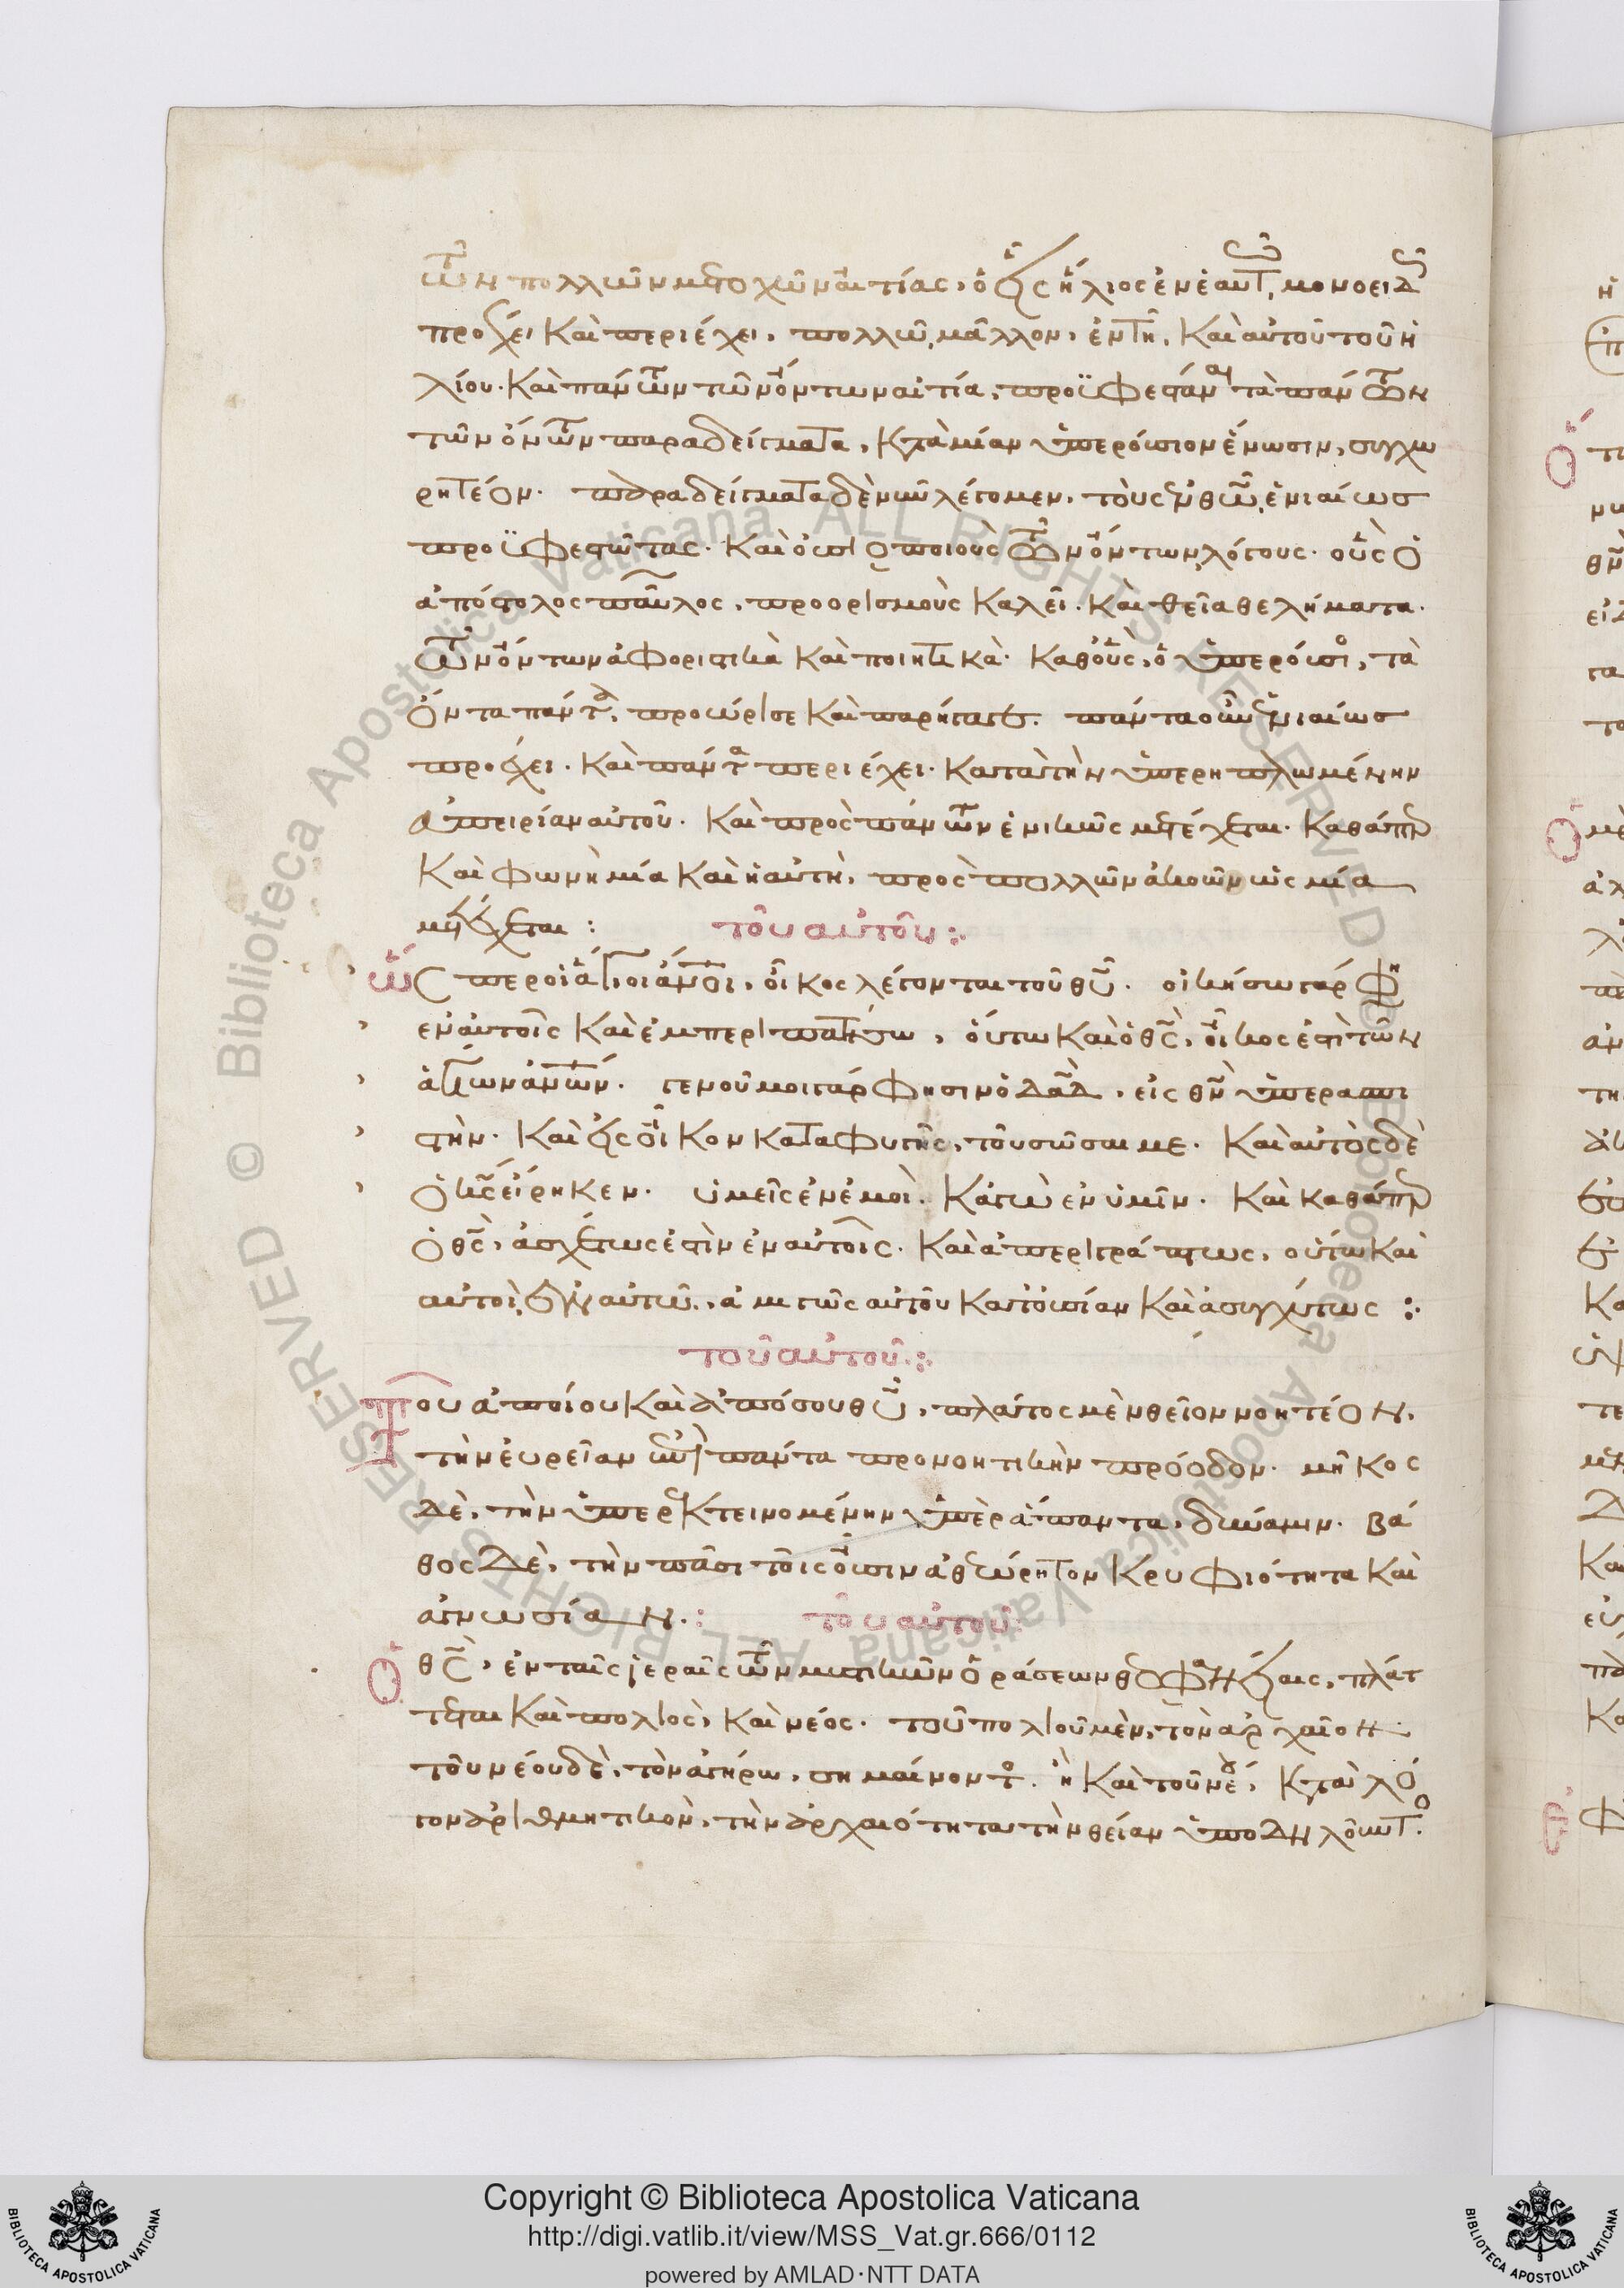 τῶν πολλῶν μετοχῶν αἰτίας, ὁ εἷς ἥλιος ἐν ἑαυτῷ, μονοειδῶς
προέχει καὶ περιέχει, πολλῷ μᾶλλον, ἐπὶ τῆς καὶ αὐτοῦ τοῦ ἡ
λίου. καὶ πάντων τῶν ὄντων αἰτίας, προϋφεστάναι τὰ πάντων
τῶν ὄντων παραδείγματα, κατὰ μίαν ὑπερούσιον ἕνωσιν, συγχω
ρητέον. παραδείγματα δὲ νῦν λέγομεν, τοὺς ἐν θεῷ ἑνιαίως
προϋφεστῶτας. καὶ οὐσιοποιοὺς τῶν ὄντων λόγους. οὓς ὁ
ἀπόστολος παῦλος, προορισμοὺς καλεῖ. καὶ θεῖα θελήματα.
τῶν ὄντων ἀφοριστικὰ καὶ ποιητικὰ. καθ' οὓς, ὁ ὑπερούσιος, τὰ
ὄντα πάντα, προώρισε καὶ παρήγαγε. πάντα οὖν ἑνιαίως
προέχει. καὶ πάντα περιέχει. κατὰ τὴν ὑπερηπλωμένην
ἀπειρίαν αὐτοῦ. καὶ πρὸς πάντων ἑνικῶς μετέχεται. καθάπερ
καὶ φωνὴ μία καὶ ἡ αὐτὴ, πρὸς πολλῶν ἀκοῶν ὡς μία
μετέχεται : τοῦ αὐτοῦ :
ὥσπερ οἱ ἅγιοι ἄνθρωποι, οἶκος λέγονται τοῦ θεοῦ. οἰκήσω γάρ φη
εν αὐτοῖς καὶ ἐμπεριπατήσω, οὕτω καὶ ὁ θεὸς, οἶκος ἐστὶ τῶν
ἁγίων ἀνθρώπων. γενοῦ μοι γάρ φησιν ὁ δαδ, εἰς θν ὑπερασπι
στὴν. καὶ εἰς οἶκον καταφυγῆς, τοῦ σῶσαι με. καὶ αὐτὸς δὲ
ὁ κς εἴρηκεν. ὑμεῖς ἐν ἐμοὶ. κἀγὼ ἐν ὑμῖν. καὶ καθάπερ
ὁ θς, ἀσχέτως ἐστὶν ἐν αὐτοῖς. καὶ ἀπεριγράπτως, οὕτω καὶ
αὐτοὶ ἐν αὐτῷ, ἀμιγῶς αὐτοῦ κατ' οὐσίαν καὶ ἀσυγχύτως :
τοῦ αὐτοῦ :
Του ἀποίου καὶ ἀπόσου θυ, πλάτος μὲν θεῖον νοητέον,
τὴν εὐρεῖαν ἐπὶ πάντα προνοητικὴν πρόοδον. μῆκος
δὲ, τὴν ὑπερεκτεινομένην ὑπὲρ ἅπαντα, δύναμιν. βά
θος δὲ, τὴν πᾶσι τοῖς οὖσιν ἀθεώρητον κρυφιότητα καὶ
αγνωσίαν : τοῦ αὐτοῦ :
Ὁ θς, ἐν ταῖς ἱεραῖς τῶν μυστικῶν ὁράσεων θεοφανείαις, πλάτ
τεται καὶ πολιὸς, καὶ νέος. τοῦ πολιοῦ μὲν, τὸν ἀρχαῖον.
τοῦ νέου δὲ, τὸν ἀγήρω, σημαίνοντος. ἢ καὶ τοῦ νέου, κατὰ λό
γον ἀριθμητικὸν, τὴν ἀρχαιότητα τὴν θείαν ὑποδηλοῦντος.
Copyright © Biblioteca Apostolica Vaticana
http://digi.vatlib.it/view/MSS_Vat.gr.666/0112
powered by AMLAD·NTT DATA